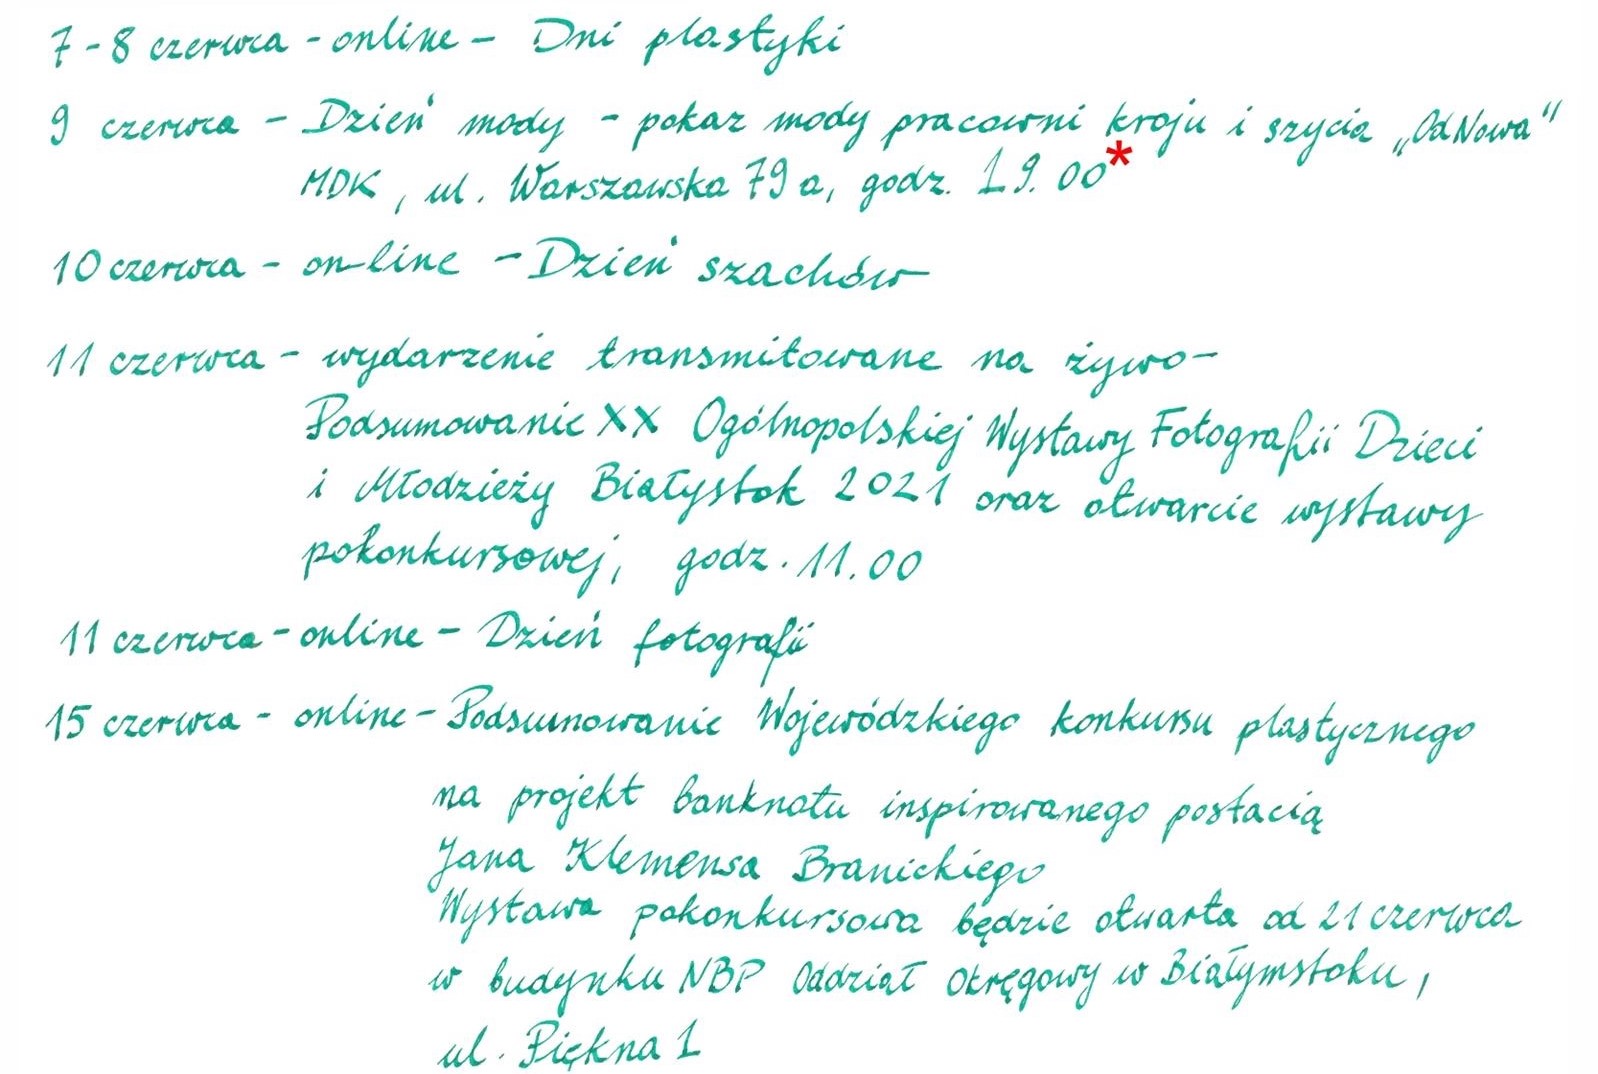 7-8 czerwca - online - Dni plastyki
9 czerwca - Dzień mody - pokaz mody pracowni kroju i szycia „OdNowa"
MDK, ul. Warszawska 79a, godz. 19.00*
10 czerwca - on-line - Dzień szachów
11 czerwca - wydarzenie transmitowane na żywo -
Podsumowanie XX Ogólnopolskiej Wystawy Fotografii Dzieci
i Młodzieży Białystok 2021 oraz otwarcie wystawy
pokonkursowej, godz. 11.00
11 czerwca - online - Dzień fotografii
15 czerwca - online - Podsumowanie Wojewódzkiego konkursu plastycznego
na projekt banknotu inspirowanego postacią
Jana Klemensa Branickiego
Wystawa pokonkursowa będzie otwarta od 21 czerwca
w budynku NBP Oddział Okręgowy w Białymstoku,
ul. Piękna 1